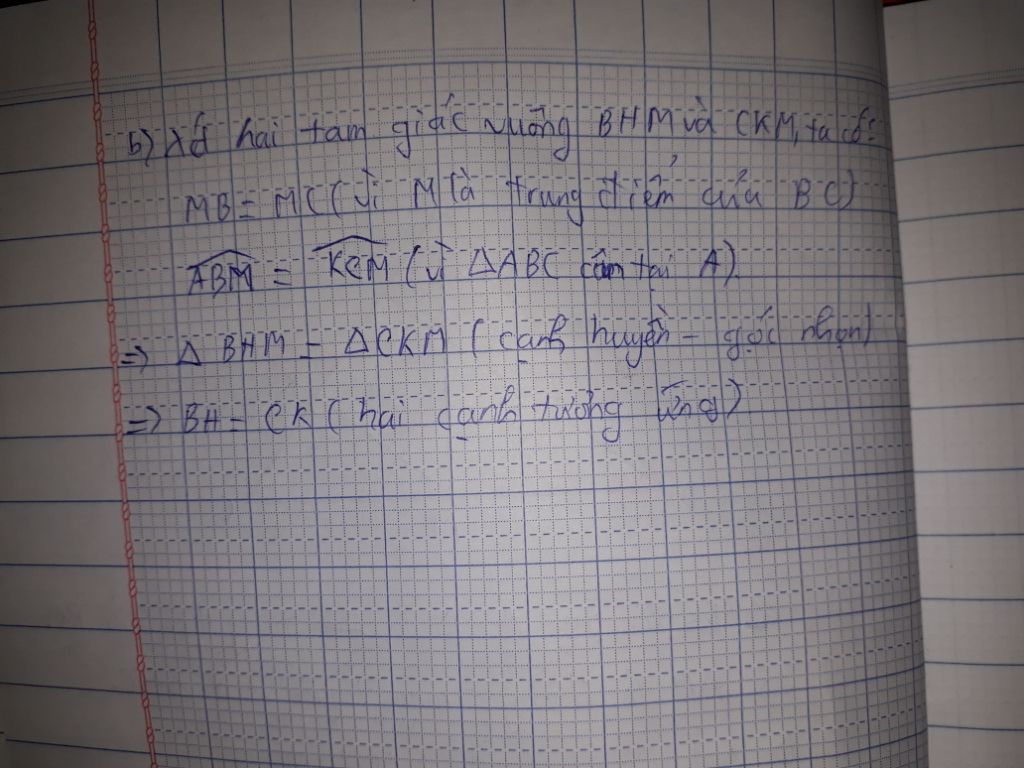 b) Xét hai tam giác vuông BHM và CKM, ta có:
MB = MC (vì M là trung điểm của BC)
ABM = KCM (vì △ABC cân tại A)
=> △ BHM = △CKM (cạnh huyền - góc nhọn)
=> BH = CK (hai cạnh tương ứng)